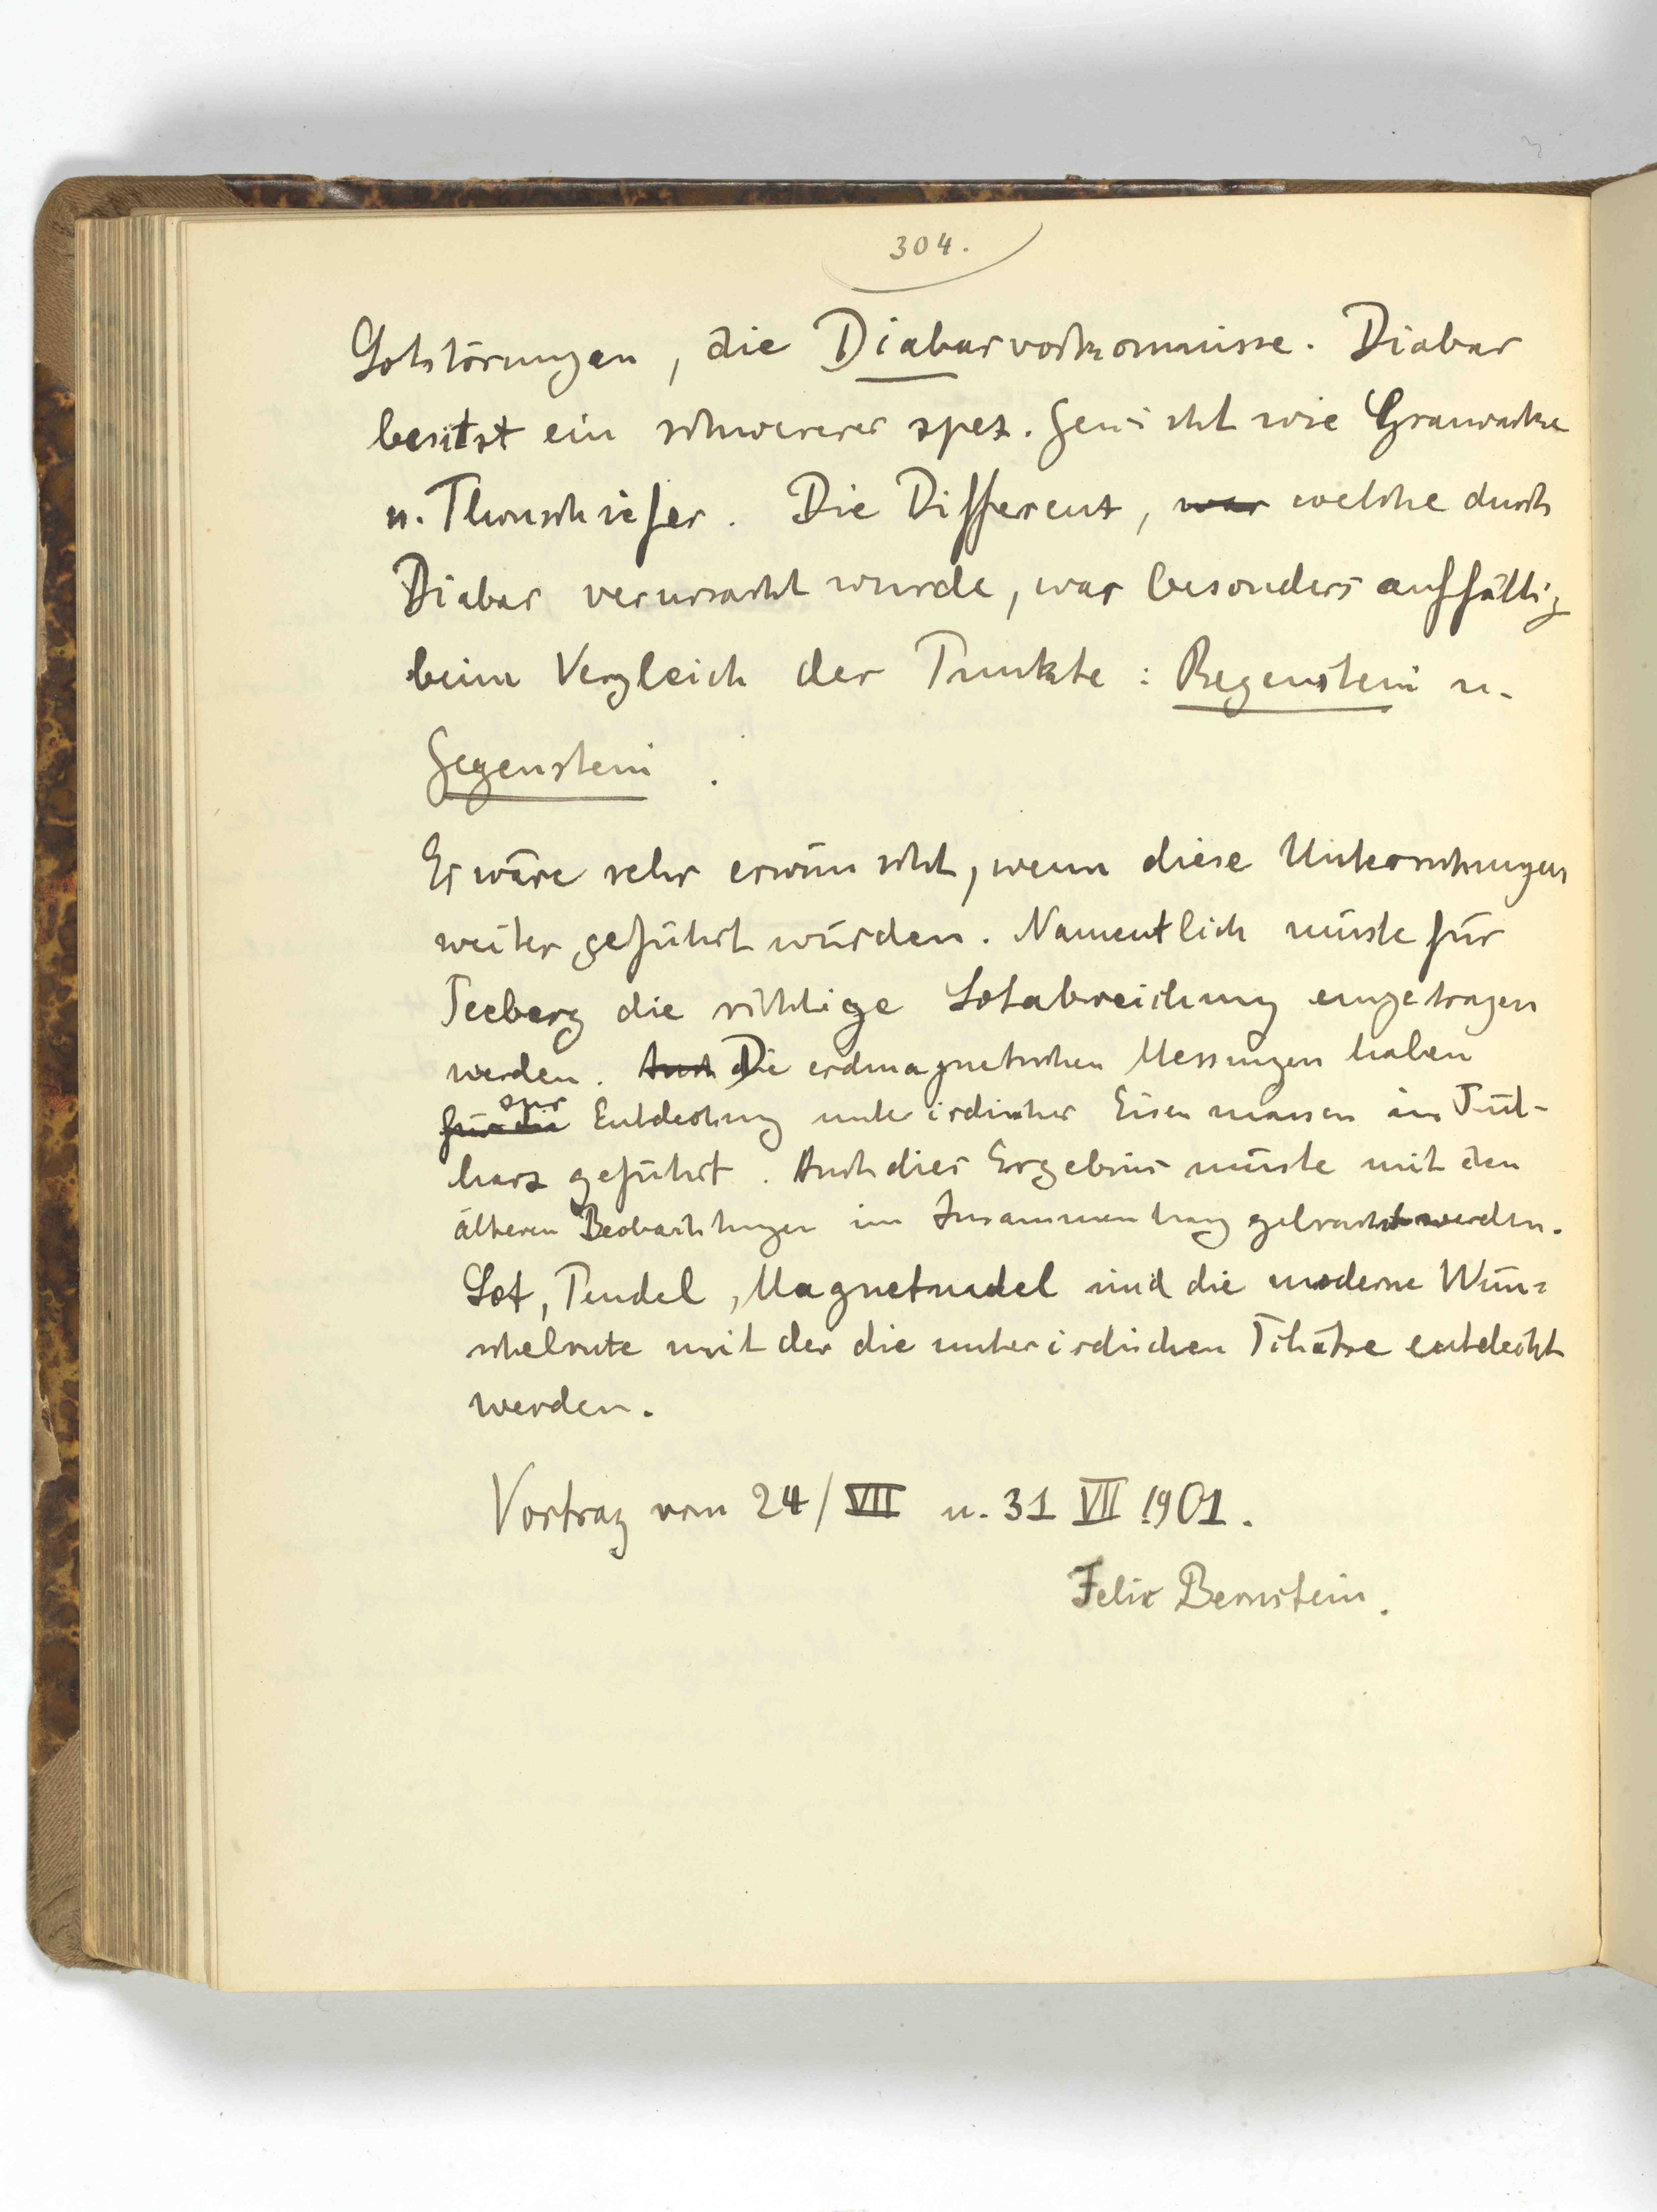 304.
Lotstörungen, die Diabasvorkommnisse. Diabas
besitzt ein schwereres spez. Gewicht wie Grauwacke
u. Thonschiefer. Die Differenz, war welche durch
Diabas verursacht wurde, war besonders auffällig
beim Vergleich der Punkte: Regenstein u.
Gegenstein.
Es wäre sehr erwünscht, wenn diese Untersuchungen
weiter geführt würden. Namentlich müsste für
Seeberg die richtige Lotabweichung eingetragen
werden. Auch Die erdmagnetischen Messungen haben
zur
für die Entdeckung unterirdischer Eisenmassen im Süd-
harz geführt. Auch dies Ergebnis müsste mit den
älteren Beobachtungen im Zusammenhang gebracht werden.
Lot, Pendel, Magnetnadel sind die moderne Wün-
schelrute mit der die unterirdischen Schätze entdeckt
werden.
Vortrag vom 24/VII u. 31 VII 1901.
Felix Bernstein.